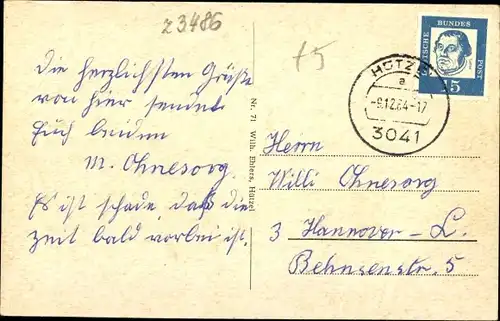 z 3486
75
Die herzlichsten Grüße
von hier sendet
Euch beiden
M. Ohnesorg.
Es ist schade, daß die
Zeit bald vorbei ist.
Nr. 71 Wilh. Ehlers, Hützel
DEUTSCHE
BUNDES
POST
15
HÜTZEL
a
-9.12.64-17
3041
Herrn
Willi Ohnesorg
3 Hannover-L.
Behnsenstr. 5